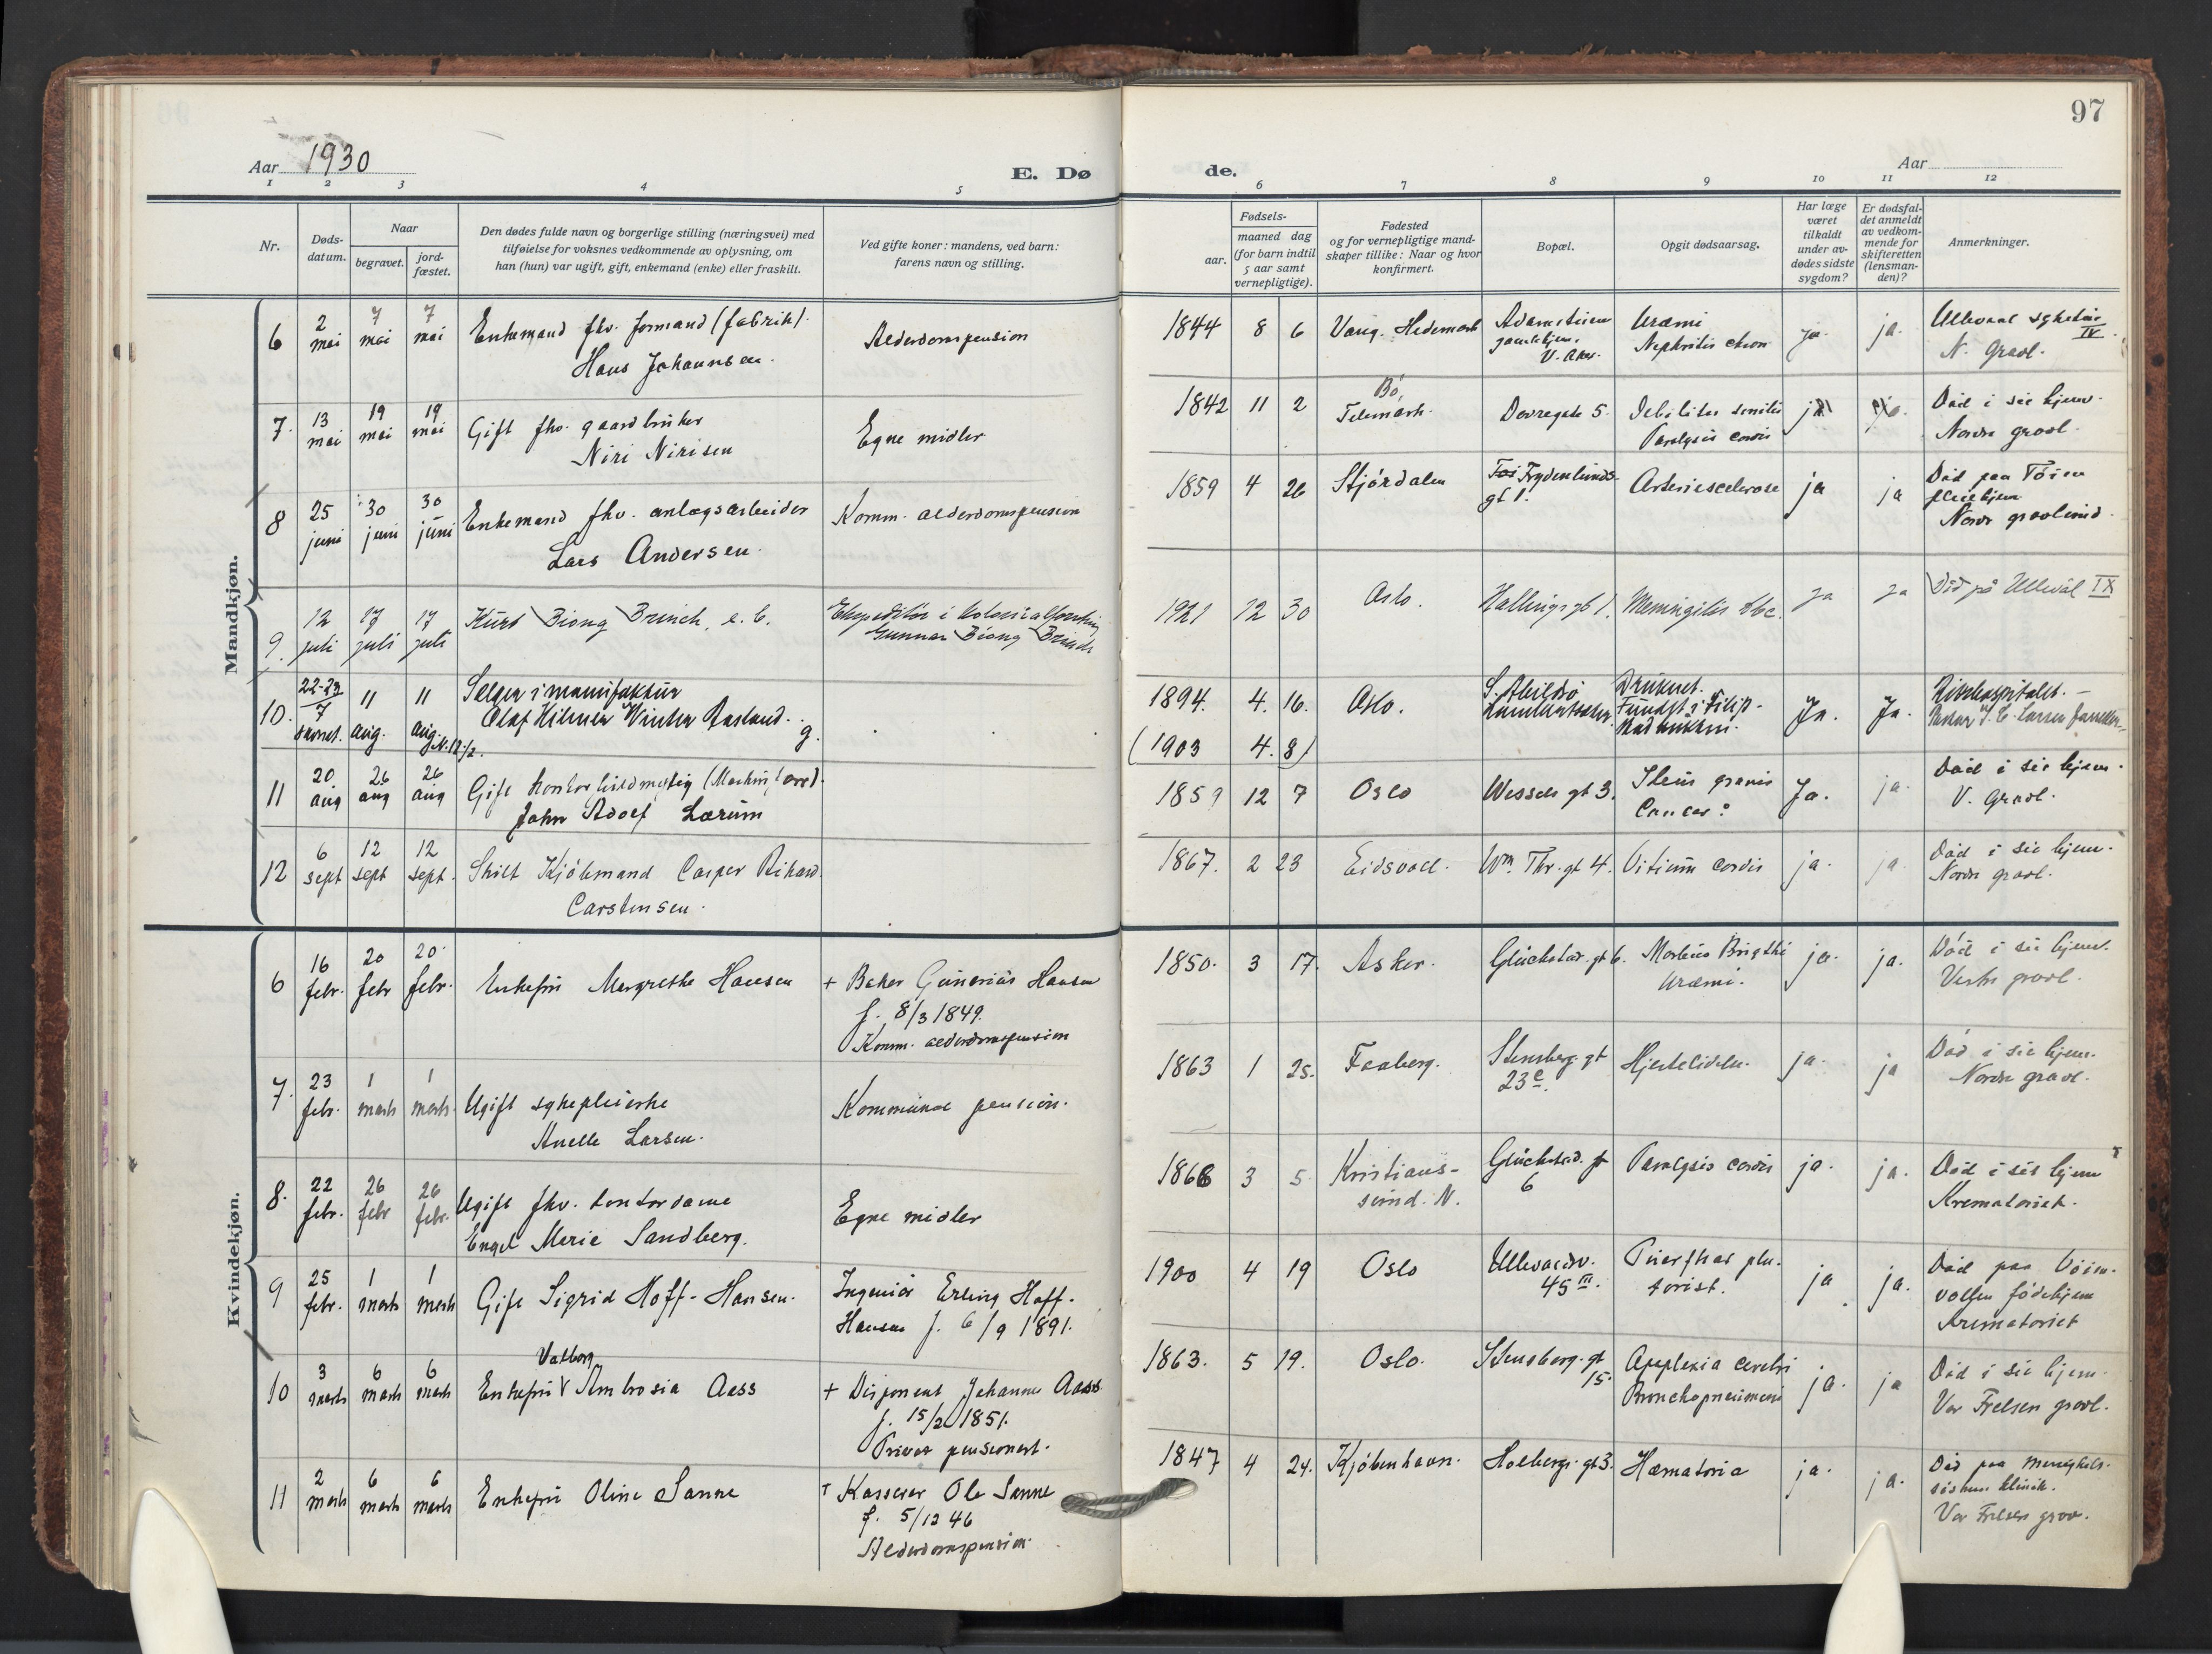 97
Aar 1930
E. Dø
de.
Aar
1 2 3 4 5 6 7 8 9 10 11 12
Nr.
Døds-
datum.
Naar
begravet.
jord-
fæstet.
Den dødes fulde navn og borgerlige stilling (næringsvei) med
tilføielse for voksnes vedkommende av oplysning, om
han (hun) var ugift, gift, enkemand (enke) eller fraskilt.
Ved gifte koner: mandens, ved barn:
farens navn og stilling.
Fødsels-
aar.
maaned dag
(for barn indtil
5 aar samt
vernepligtige).
Fødested
og for vernepligtige mand-
skaper tillike: Naar og hvor
konfirmert.
Bopæl.
Opgit dødsaarsag.
Har læge
været
tilkaldt
under av-
dødes sidste
sygdom?
Er dødsfal-
det anmeldt
av vedkom-
mende for
skifteretten
(lensman-
den)?
Anmerkninger.
Mandkjøn.
6 2 mai 7 mai 7 mai
Enkemand fhv. formand (fabrik).
Hans Johannsen.
Alderdomspension
1844 8 6 Vang. Hedemark
V. Aker.
Uræmi
Nephritis chron
ja. ja.
Ullevaal sykehus
IV
N. Gravl.
7. 13 mai 19 mai 19 mai
Gift fhv. gaardbruker
Niri Nirisen
Egne midler
1842 11 2
Bø
Telemark.
Dovregate 5.
Debilitas senilis
Paralysis cordis
ja
Død i sit hjem.
Nordre gravl.
8 25 juni 30 juni 30 juni
Enkemand fhv. anlægsarbeider
Lars Andersen.
Komm. alderdomspension
1859 4 26 Stjørdalen
Frydenlunds-
gt 1.
Arteriesclerose
ja ja
Død paa Tøien
pleiehjem
Nordr gravlund.
9. 12 juli 17 juli 17 juli
Kurt Biong Brinch, e. b.
Ekspeditør i kolonialforretning
Gunnar Biong Brinch
1921 12 30 Oslo.
Hallings gt 1.
Meningitis tbc.
ja ja
Død på Ullevål IX
10. 22-23/7 11 aug. 11 aug.
Selger i manufaktur
Olaf Hilmer Winter Aasland. g.
1894. 4. 16. Oslo.
(1903 4. 8)
Druknet.
Fundet i Filip-
stadbukten.
Ja. Ja.
Rikshospitalet. -
11 20 aug 26 aug 26 aug
Gift kontorfuldmegtig
John Adolf Lærum
1859 12 7 Oslo
Wessels gt 3.
Ileus gravis
Cancer?
Ja. ja.
Død i sit hjem.
V. Gravl.
12 6 sept 12 sept 12 sept.
Skilt Kjøbmand Casper Rikard
Carstensen.
1867. 2 23 Eidsvoll.
Wm Thr. gt 4.
Vitium cordis
ja. ja.
Død i sit hjem.
Nordre gravl.
Kvindekjøn.
6 16 febr. 20 febr 20 febr.
Enkefru Margrethe Hansen
+ Baker Gunerius Hansen
f. 8/3 1849.
Komm. alderdomspension
1850. 3 17. Asker.
Glückstad. gt 6.
Morbus Brigthi
Uræmi.
ja. ja.
Død i sit hjem.
Vestre gravl.
7. 23 febr. 1 marts 1 marts.
Ugift sykepleierske
Anette Larsen.
Kommunal pension.
1863 1 25. Faaberg.
Stensberg. gt
23 c.
Hjertelidelse.
ja. ja
Død i sit hjem.
Nordre gravl.
8. 22 febr. 26 febr 26 febr.
Ugift fhv. kontordame
Engel Marie Sandberg.
Egne midler
1866 3 5
Kristians-
sund. N.
Glückstad. gt
6
Paralysis cordis
ja. ja.
Død i sit hjem
Krematoriet.
9 25 febr. 1 marts 1 marts
Gift Sigrid Hoff-Hansen.
Ingeniør Erling Hoff-
Hansen f. 6/9 1891.
1900 4 19 Oslo
Ullevaalsv.
45 III.
ja ja.
Død paa Voien-
volden fødehjem
Krematoriet
10 3 marts 6 marts 6 marts
Valborg
Enkefru Ambrosia Aass
+ Disponent Johannes Aass
f. 15/2 1851.
Privat pensionert.
1863. 5 19. Oslo.
Stensberg. gt
15.
Apoplexia cerebri
Bronchopneumoni
ja. ja
Død i sit hjem.
Vor Frelsers gravl.
11 2 marts 6 marts 6 marts
Enkefru Oline Sanne
+ Kasserer Ole Sanne
f. 5/12 46
Alderdomspension.
1847 4 24. Kjøbenhavn.
Holbergs. gt 3.
Hæmatoria
ja. ja.
Død paa Menighets-
søstrenes klinik.
Vor Frelsers grav.